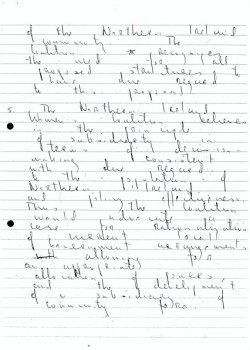 of the Northern Ireland
community. The
Coalition recognises
the need for all
proposed structures to
have due regard
to this proposal)
5. The Northern Ireland
Women's Coalition believes
in the principle
of subsidiarity in
terms of decision-
making consistent
with due regard
to the population of
Northern Ireland
and policy effectiveness.
Thus the Coalition
would advocate a
case for rationalisation
of present local
Government arrangements
allowing for
an appropriate
allocation of powers,
and the development
of a subsidiary of
community